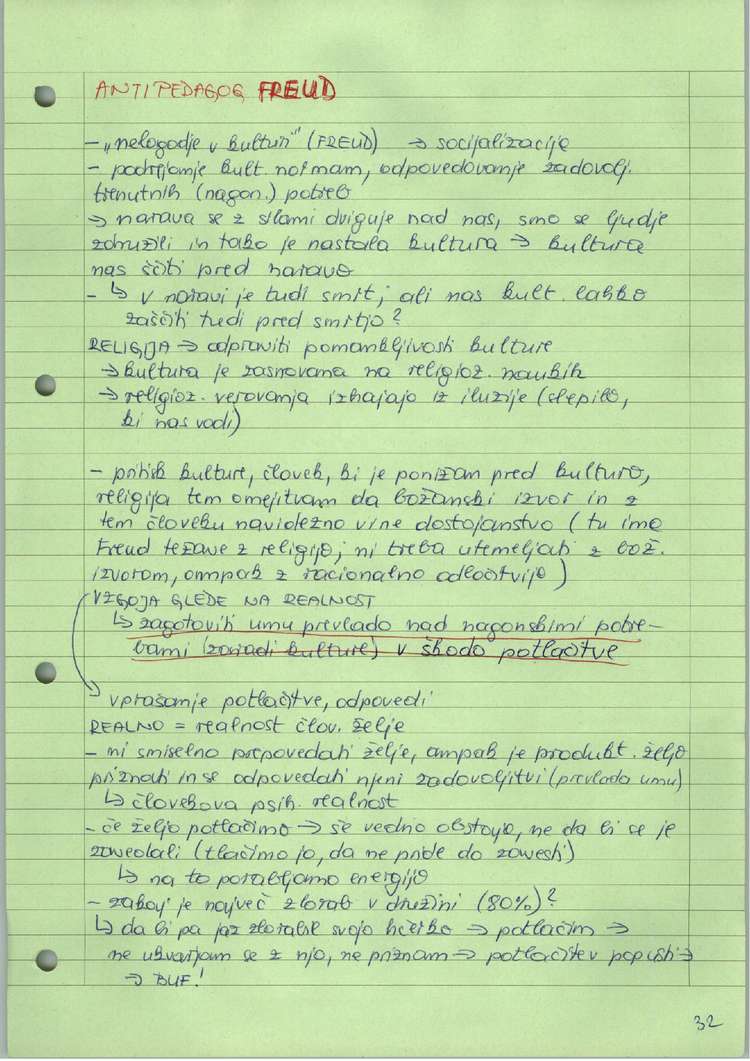 ANTIPEDAGOG FREUD
- „nelagodje v kulturi" (FREUD) → socijalizacije
- podrejanje kult. normam, odpovedovanje zadovolj.
trenutnih (nagon.) potreb
→ narava se z silami dviguje nad nas, smo se ljudje
združili in tako je nastala kultura → kultura
nas ščiti pred naravo
- ↳ v naravi je tudi smrt; ali nas kult. lahko
zaščiti tudi pred smrtjo?
RELIGIJA → odpraviti pomankljivosti kulture
→ kultura je zasnovana na religioz. naukih
→ religioz. verovanja izhajajo iz iluzije (slepilo,
ki nas vodi)
- pritisk kulture, človek, ki je ponižan pred kulturo,
religija tem omejitvam da božanski izvor in z
tem človeku navidezno vrne dostojanstvo (tu ima
Freud težave z religijo; ni treba utemeljati z bož.
izvorom, ampak z racionalno odločitvijo)
VZGOJA GLEDE NA REALNOST
↳ zagotoviti umu prevlado nad nagonskimi potre-
bami (zaradi kulture) v škodo potlačitve
vprašanje potlačitve, odpovedi
REALNO = realnost člov. želje
- ni smiselno prepovedati želje, ampak je produkt. željo
priznati in se odpovedati njeni zadovoljitvi (prevlado umu)
↳ človekova psih. realnost
- če željo potlačimo → še vedno obstaja, ne da bi se je
zavedali (tlačimo jo, da ne pride do zavesti)
↳ na to porabljamo energijo
- zakaj je največ zlorab v družini (80%)?
↳ da bi pa jaz zlorabil svojo hčerko → potlačim →
ne ukvarjam se z njo, ne priznam → potlačitev popusti →
→ BUF!
32